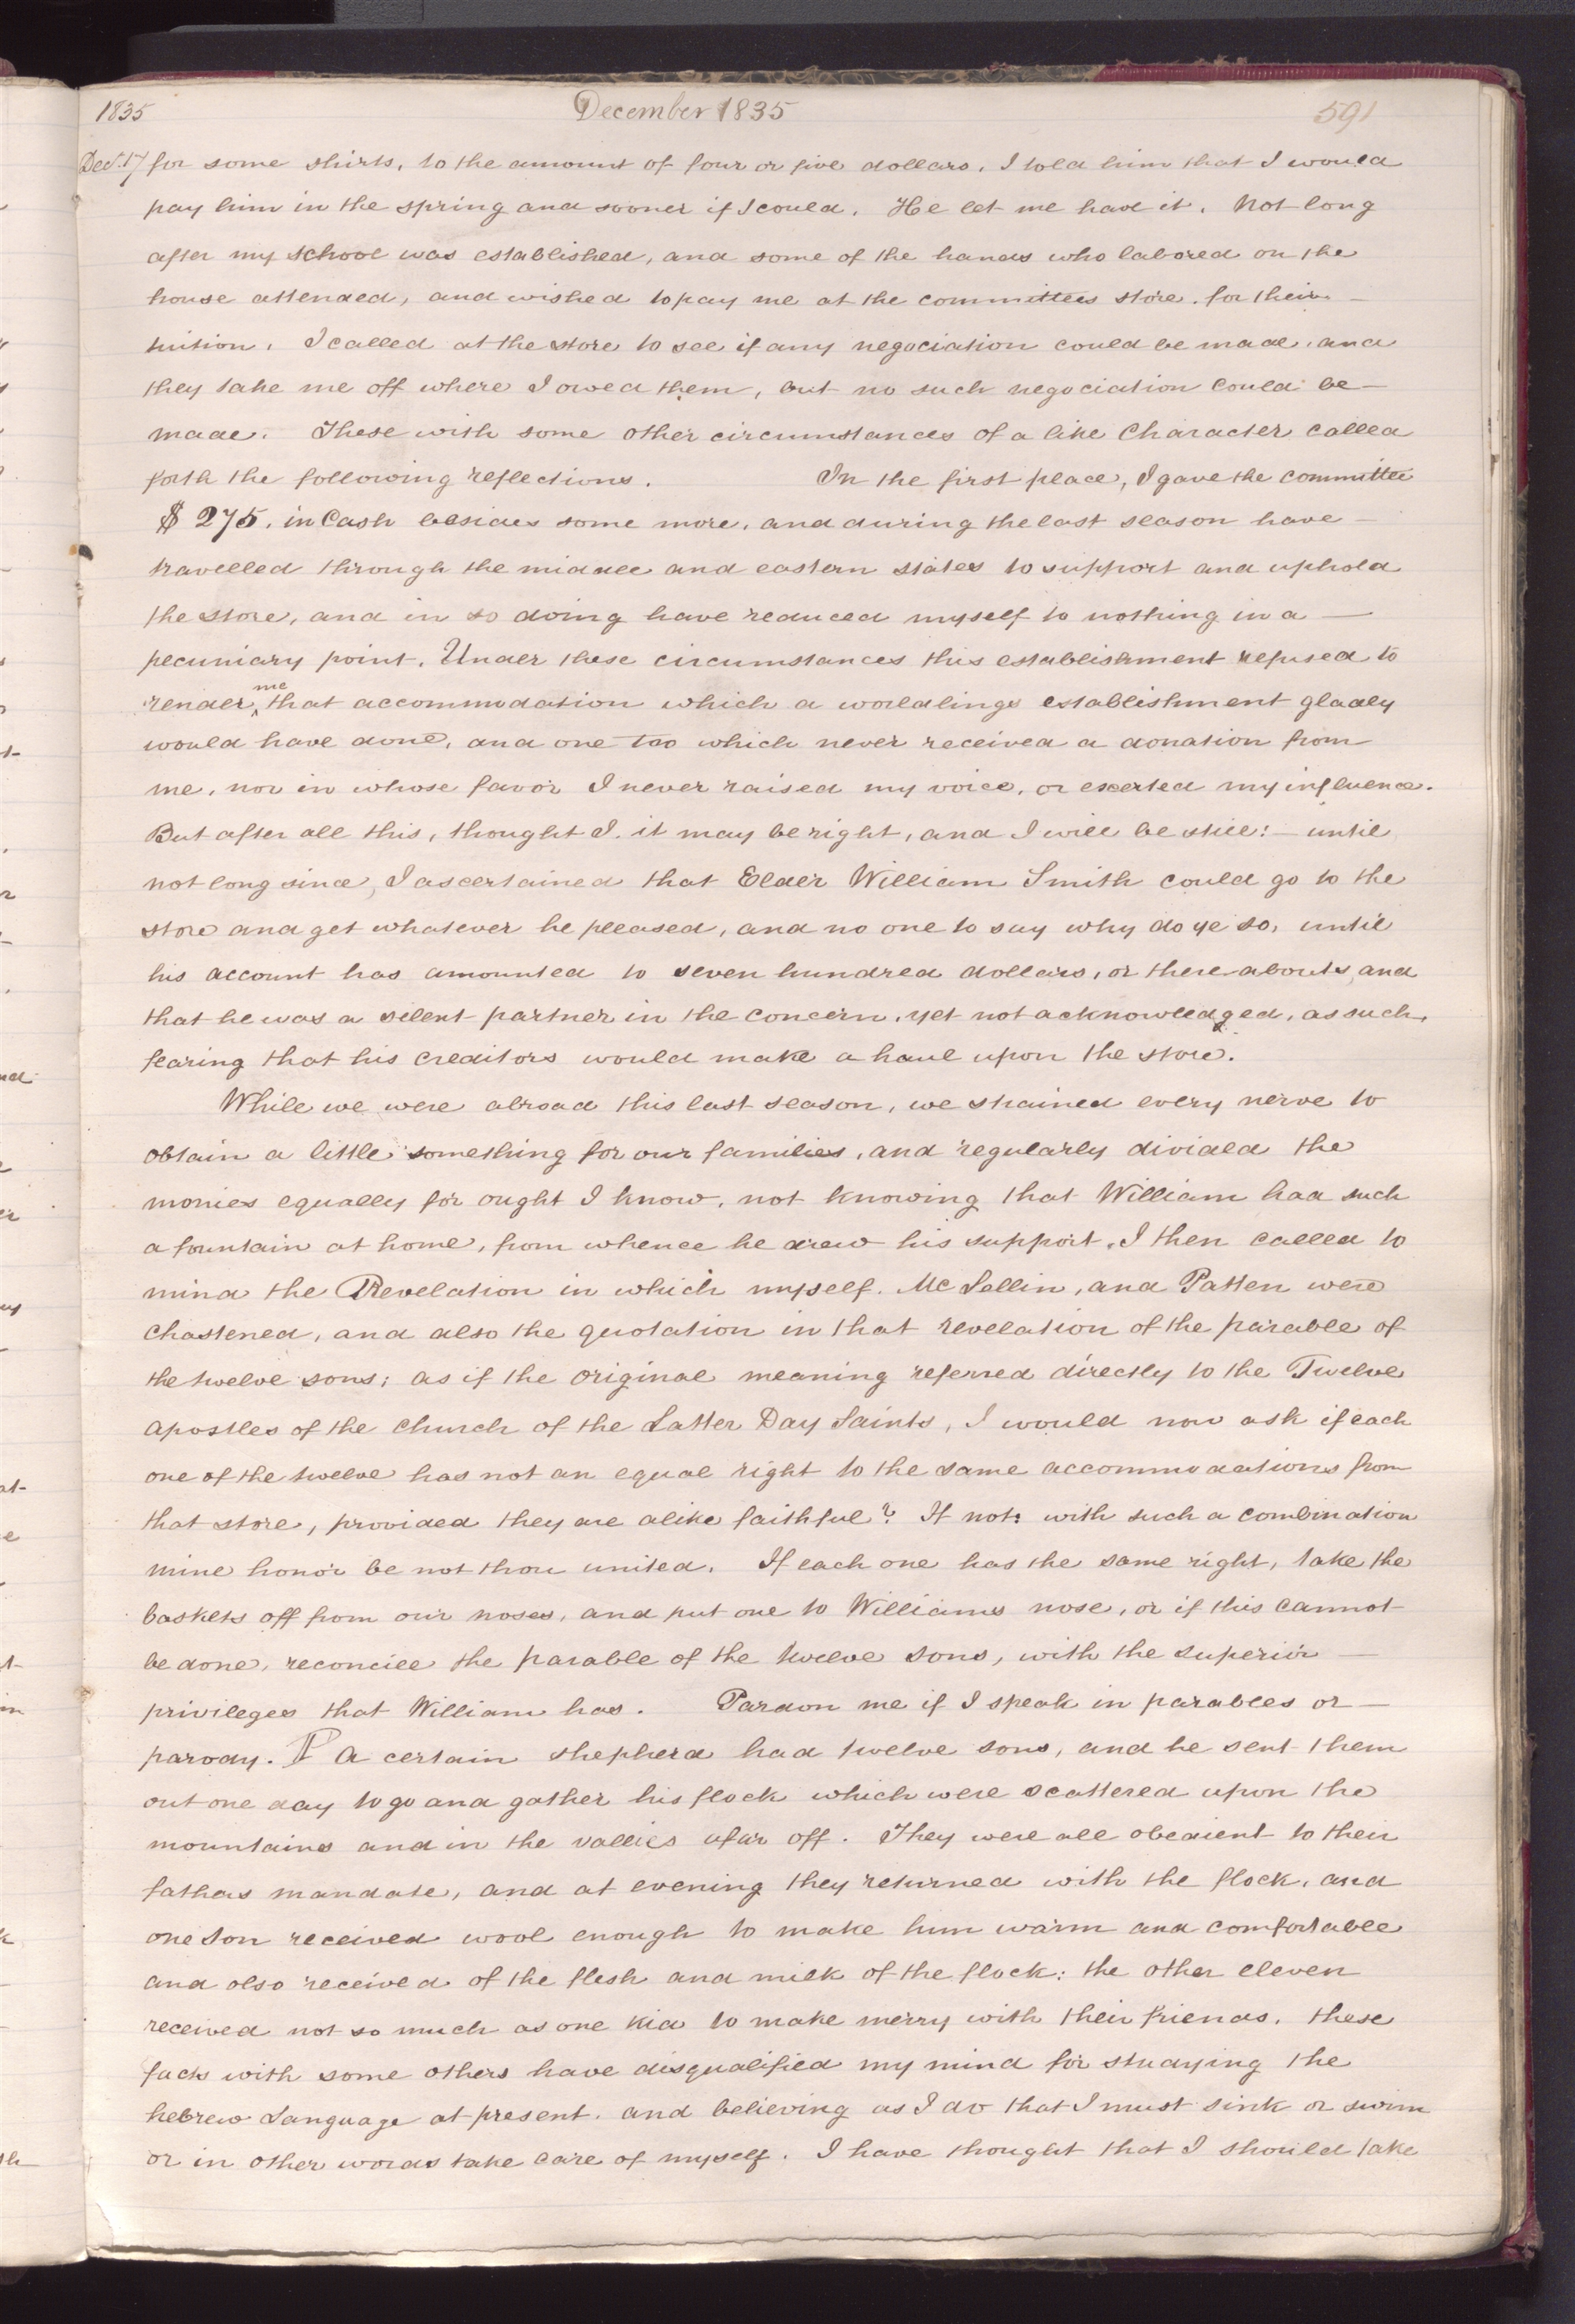 1835 December 1835 591
Dec. 17 for some shirts, to the amount of four or five dollars. I told him that I would
pay him in the spring and sooner if I could. He let me have it. Not long
after my school was established, and some of the hands who labored on the
house attended, and wished to pay me at the committees store. for their —
tuition. I called at the store to see if any negociation could be made. and
they take me off where I owed them, but no such negociation could be —
made. These with some other circumstances of a like Character called
forth the following reflections. In the first place, I gave the committee
$275. in Cash besides some more. and during the last season have —
travelled through the middle and eastern states to support and uphold
the store, and in so doing have reduced myself to nothing in a —
pecuniary point. Under these circumstances this establishment refused to
render ^me that accommodation which a worldlings establishment gladly
would have done, and one too which never received a donation from
me, nor in whose favor I never raised my voice, or exerted my influence.
But after all this, thought I. it may be right, and I will be still: — until
not long since, I ascertained that Elder William Smith could go to the
store and get whatever he pleased, and no one to say why do ye so, until
his account has amounted to seven hundred dollars, or there-abouts, and
that he was a silent partner in the concern. yet not acknowledged, as such,
fearing that his creditors would make a haul upon the store.
While we were abroad this last season, we strained every nerve to
obtain a little something for our families, and regularly divided the
monies equally for ought I know, not knowing that William had such
a fountain at home, from whence he drew his support. I then called to
mind the Revelation in which myself. Mc Lellin, and Patten were
chastened, and also the quotation in that revelation of the parable of
the twelve sons; as if the original meaning referred directly to the Twelve
apostles of the church of the Latter Day Saints, I would now ask if each
one of the twelve has not an equal right to the same accommodations from
that store, provided they are alike faithful? If not: with such a combination
mine honor be not thou united. If each one has the same right, take the
baskets off from our noses, and put one to Williams nose, or if this cannot
be done, reconcile the parable of the twelve sons, with the superior —
privileges that William has. Pardon me if I speak in parables or —
parody. ¶ A certain shepherd had twelve sons, and he sent them
out one day to go and gather his flock which were scattered upon the
mountains and in the vallies afar off. They were all obedient to their
fathers mandate, and at evening they returned with the flock, and
one son received wool enough to make him warm and comfortable
and also received of the flesh and milk of the flock: the other eleven
received not so much as one kid to make merry with their friends. these
facts with some others have disqualified my mind for studying the
hebrew Language at present. and believing as I do that I must sink or swim
or in other words take care of myself. I have thought that I should take